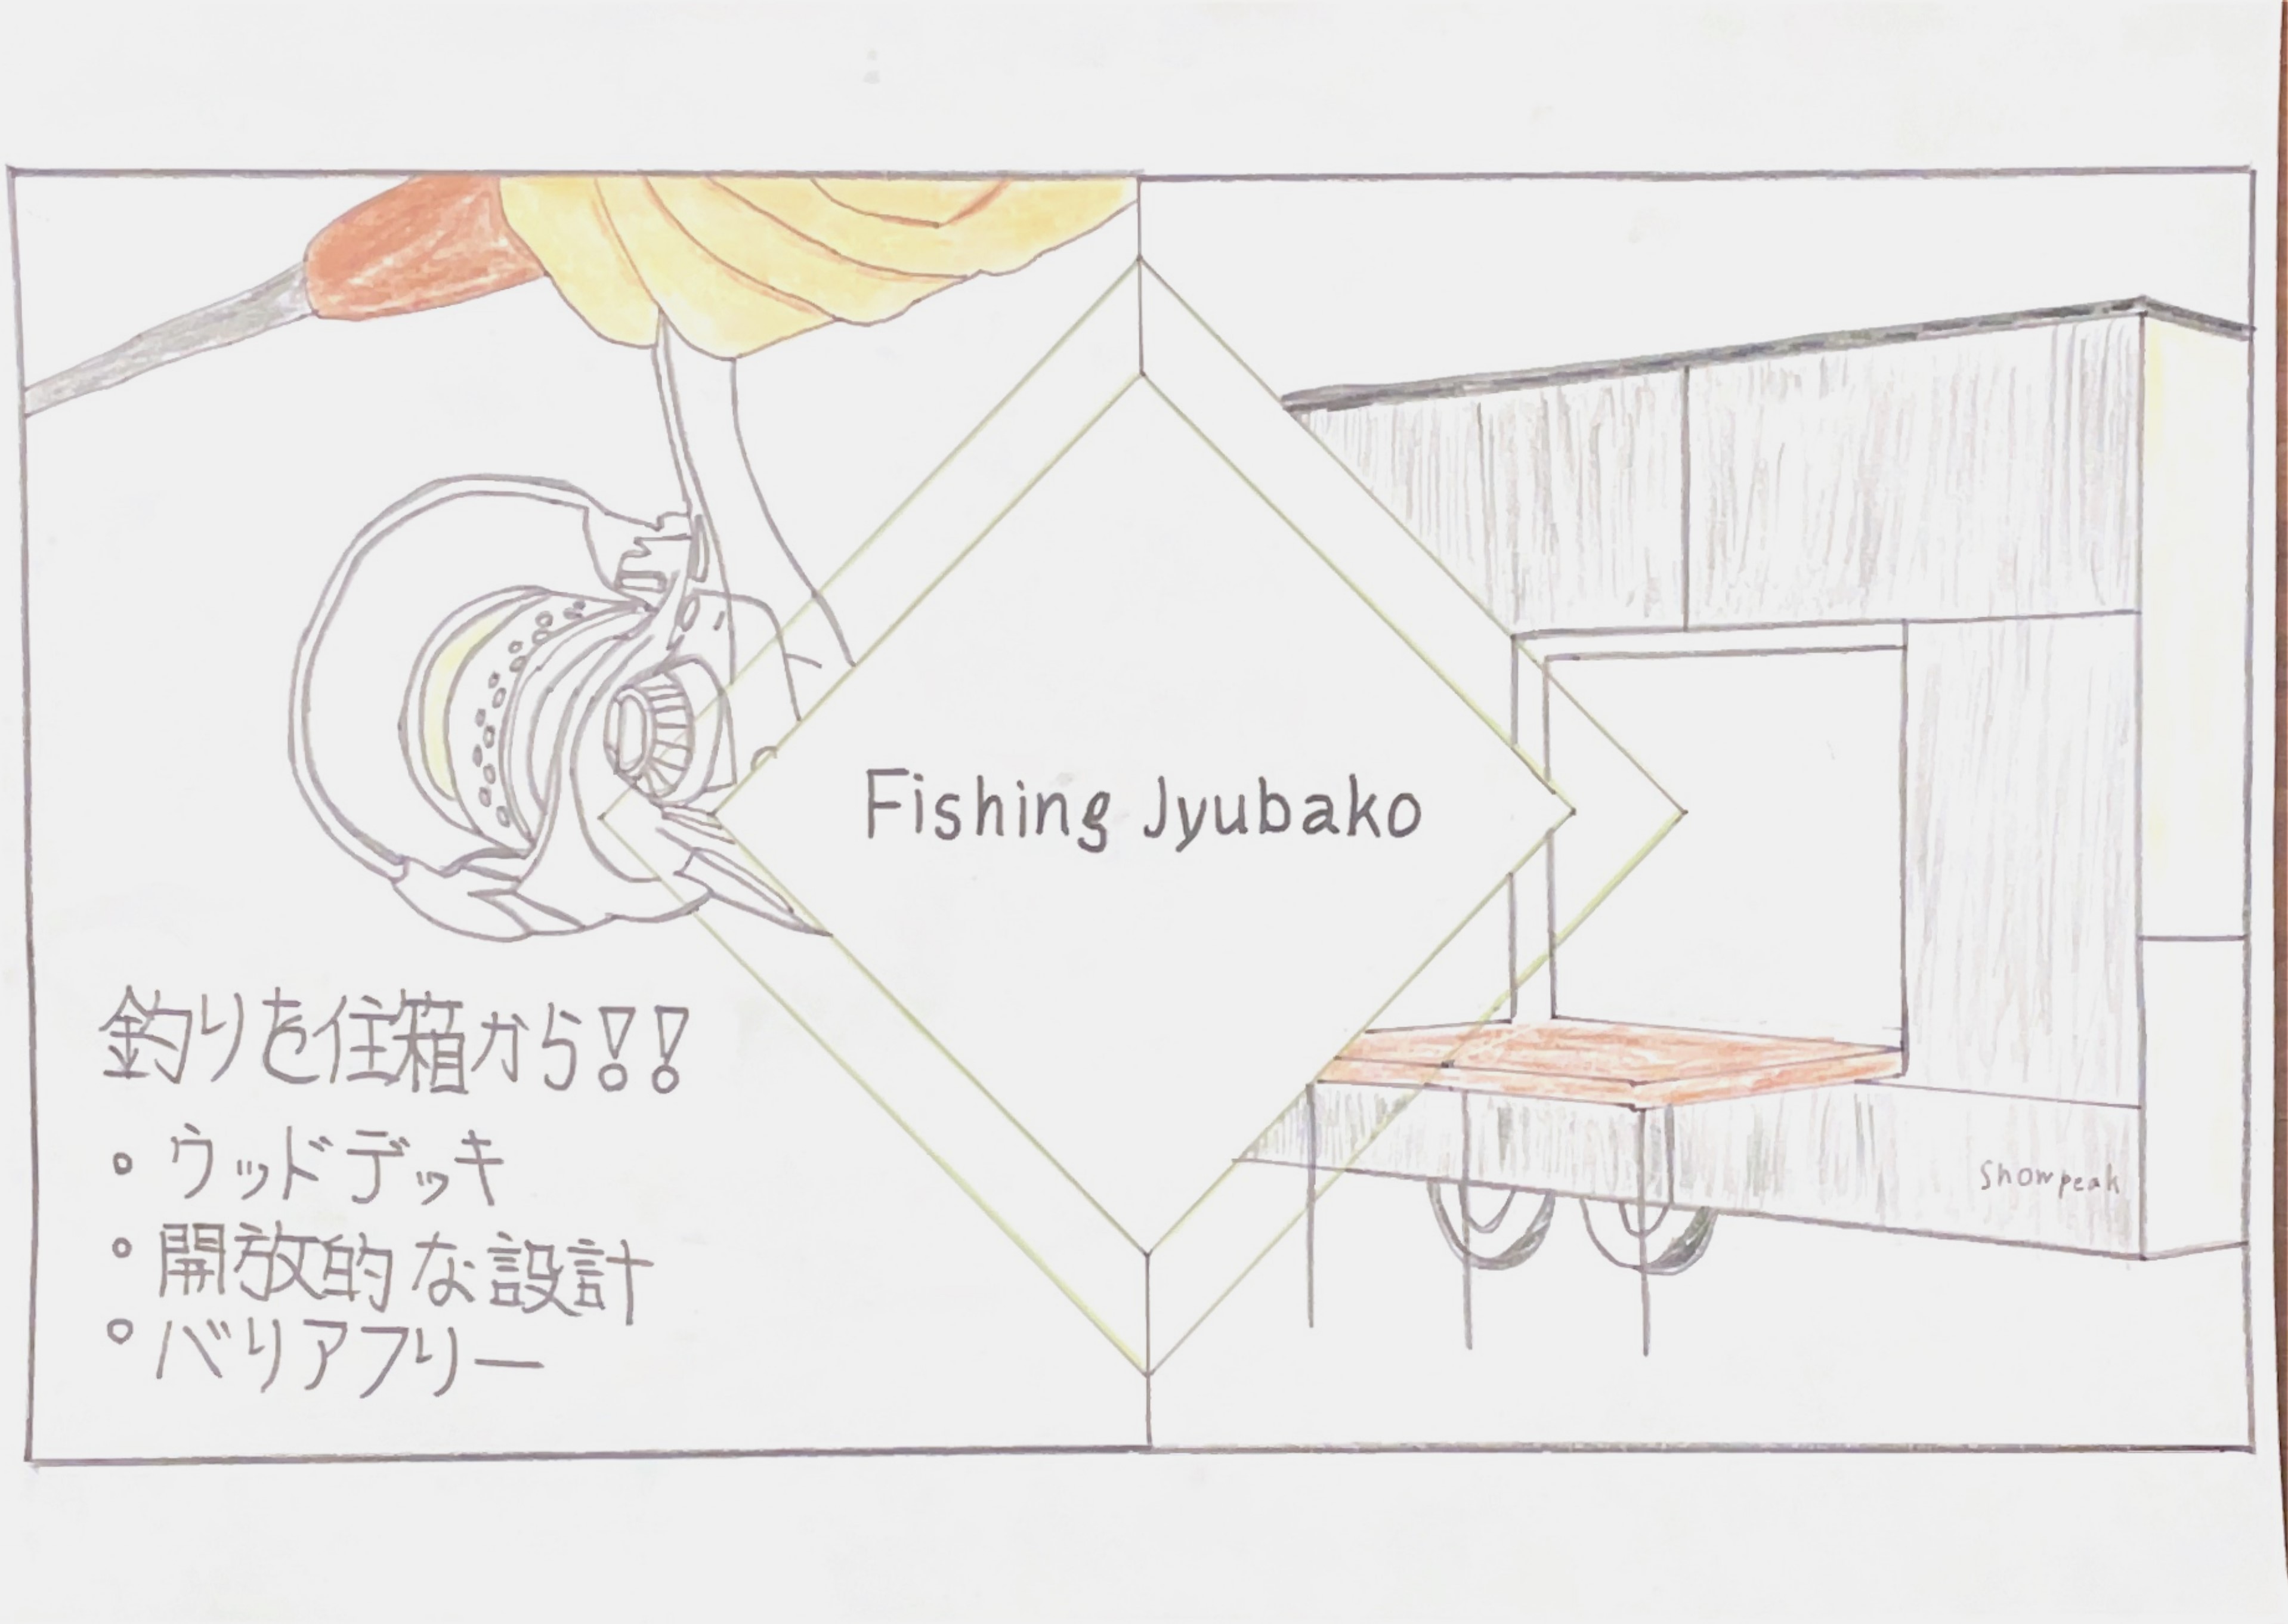 Fishing Jyubako
釣りを住箱から!!
・ウッドデッキ
・開放的な設計
・バリアフリー
Snowpeak